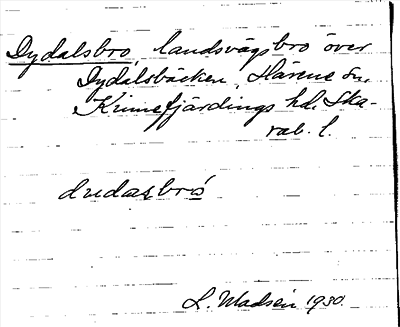 Dydalsbro, landsvägsbro över
Dydalsbäcken, Härene sn,
Kinnefjärdings hd, Ska-
rab. l.
dudasbro
L. Madsén 1930